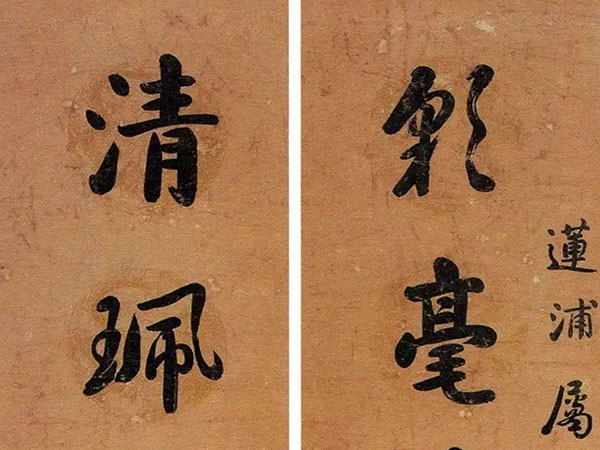 蓮浦屬
彩毫
清珮